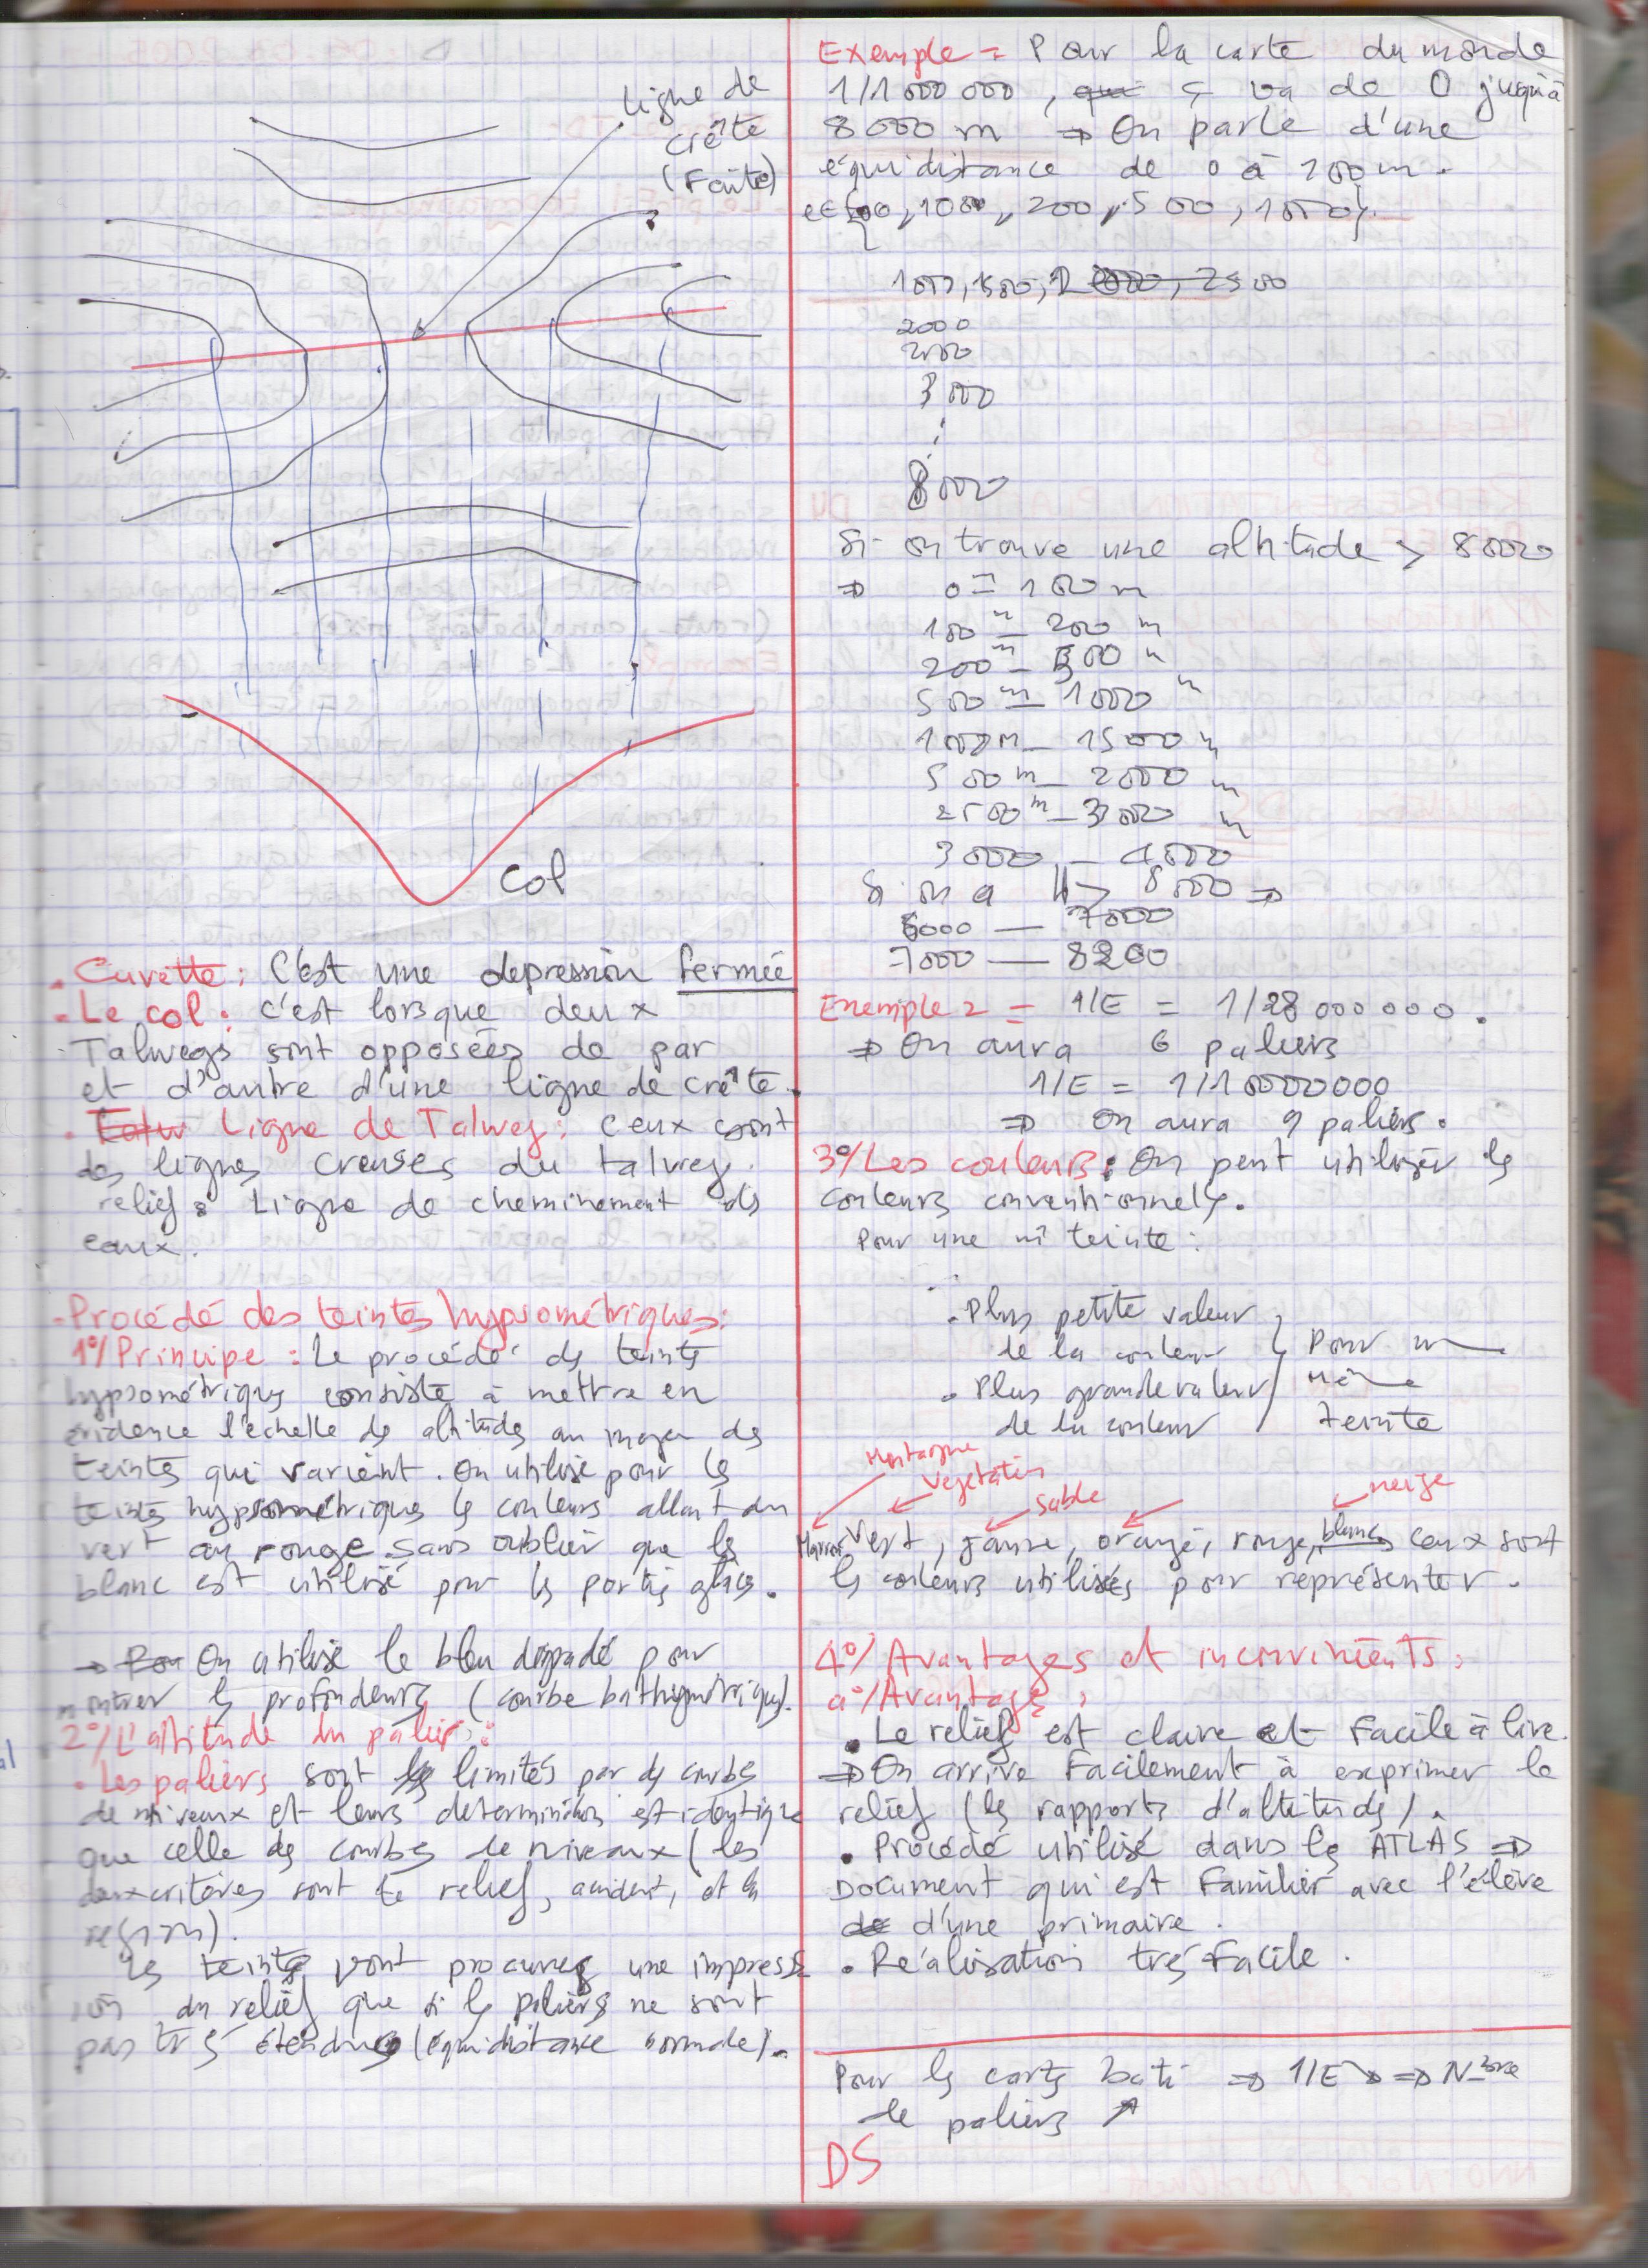 Ligne de
crête
(Faîte)
Col
. Cuvette : C'est une depression fermée
. Le col : c'est lorsque deux
Talwegs sont opposées de par
et d'autre d'une ligne de crête.
. Ligne de Talweg : Ceux sont
des lignes creuses du talweg.
relief : Ligne de cheminement des
eaux.
- Procédé des teintes hypsométriques :
1°/ Principe : Le procédé des teintes
hypsométriques consiste à mettre en
évidence l'échelle des altitudes au moyen des
teintes qui varient. On utilise pour les
teintes hypsométriques les couleurs allant du
vert au rouge sans oublier que le
blanc est utilisé pour les parties glaces.
→ On utilise le bleu dégradé pour
montrer les profondeurs (courbe bathymétrique).
2°/ L'altitude du palier :
. Les paliers sont limités par des courbes
de niveaux et leurs determination est identique
que celle des courbes de niveaux (les
deux critères sont le relief, accident, et la
region).
Les teintes vont procurer une impress
ion du relief que si les paliers ne sont
pas très étendues (équidistance normale).
Exemple = Pour la carte du monde
1/1 000 000, ç va de 0 jusqu'à
8000 m ⇒ On parle d'une
équidistance de 0 à 100 m.
200, 500, 1000).
1000, 1500, 2500
2000
3000
8000
Si on trouve une altitude > 8000
⇒ 0 - 100 m
100 m - 200 m
200 m - 500 m
500 m - 1000 m
1000 m - 1500 m
500 m - 2000 m
2500 m - 3000 m
3000 - 4000
Si on a H > 8000 ⇒
6000 — 7000
7000 — 8200
Exemple 2 = 1/E = 1/28 000 000.
⇒ On aura 6 paliers
1/E = 1/10000000
⇒ On aura 9 paliers.
3°/ Les couleurs : On peut utiliser les
couleurs conventionnelles.
Pour une m̂ teinte :
. Plus petite valeur
de la couleur
. Plus grande valeur
de la couleur
Pour une
Même
teinte
Montagne
Végétation
Sable
neige
Marron Vert, jaune, orangé, rouge, blanc ceux sont
les couleurs utilisées pour représenter.
4°/ Avantages et inconvinients :
a°/ Avantages :
. Le relief est claire et Facile à lire.
⇒ On arrive Facilement à exprimer le
relief (les rapports d'altitudes).
. Procédé utilisé dans les ATLAS ⇒
Document qui est Familier avec l'élève
d'une primaire.
. Réalisation très Facile.
Pour les cartes bati ⇒ 1/E ↘ ⇒ Nbre
de paliers ↗
DS